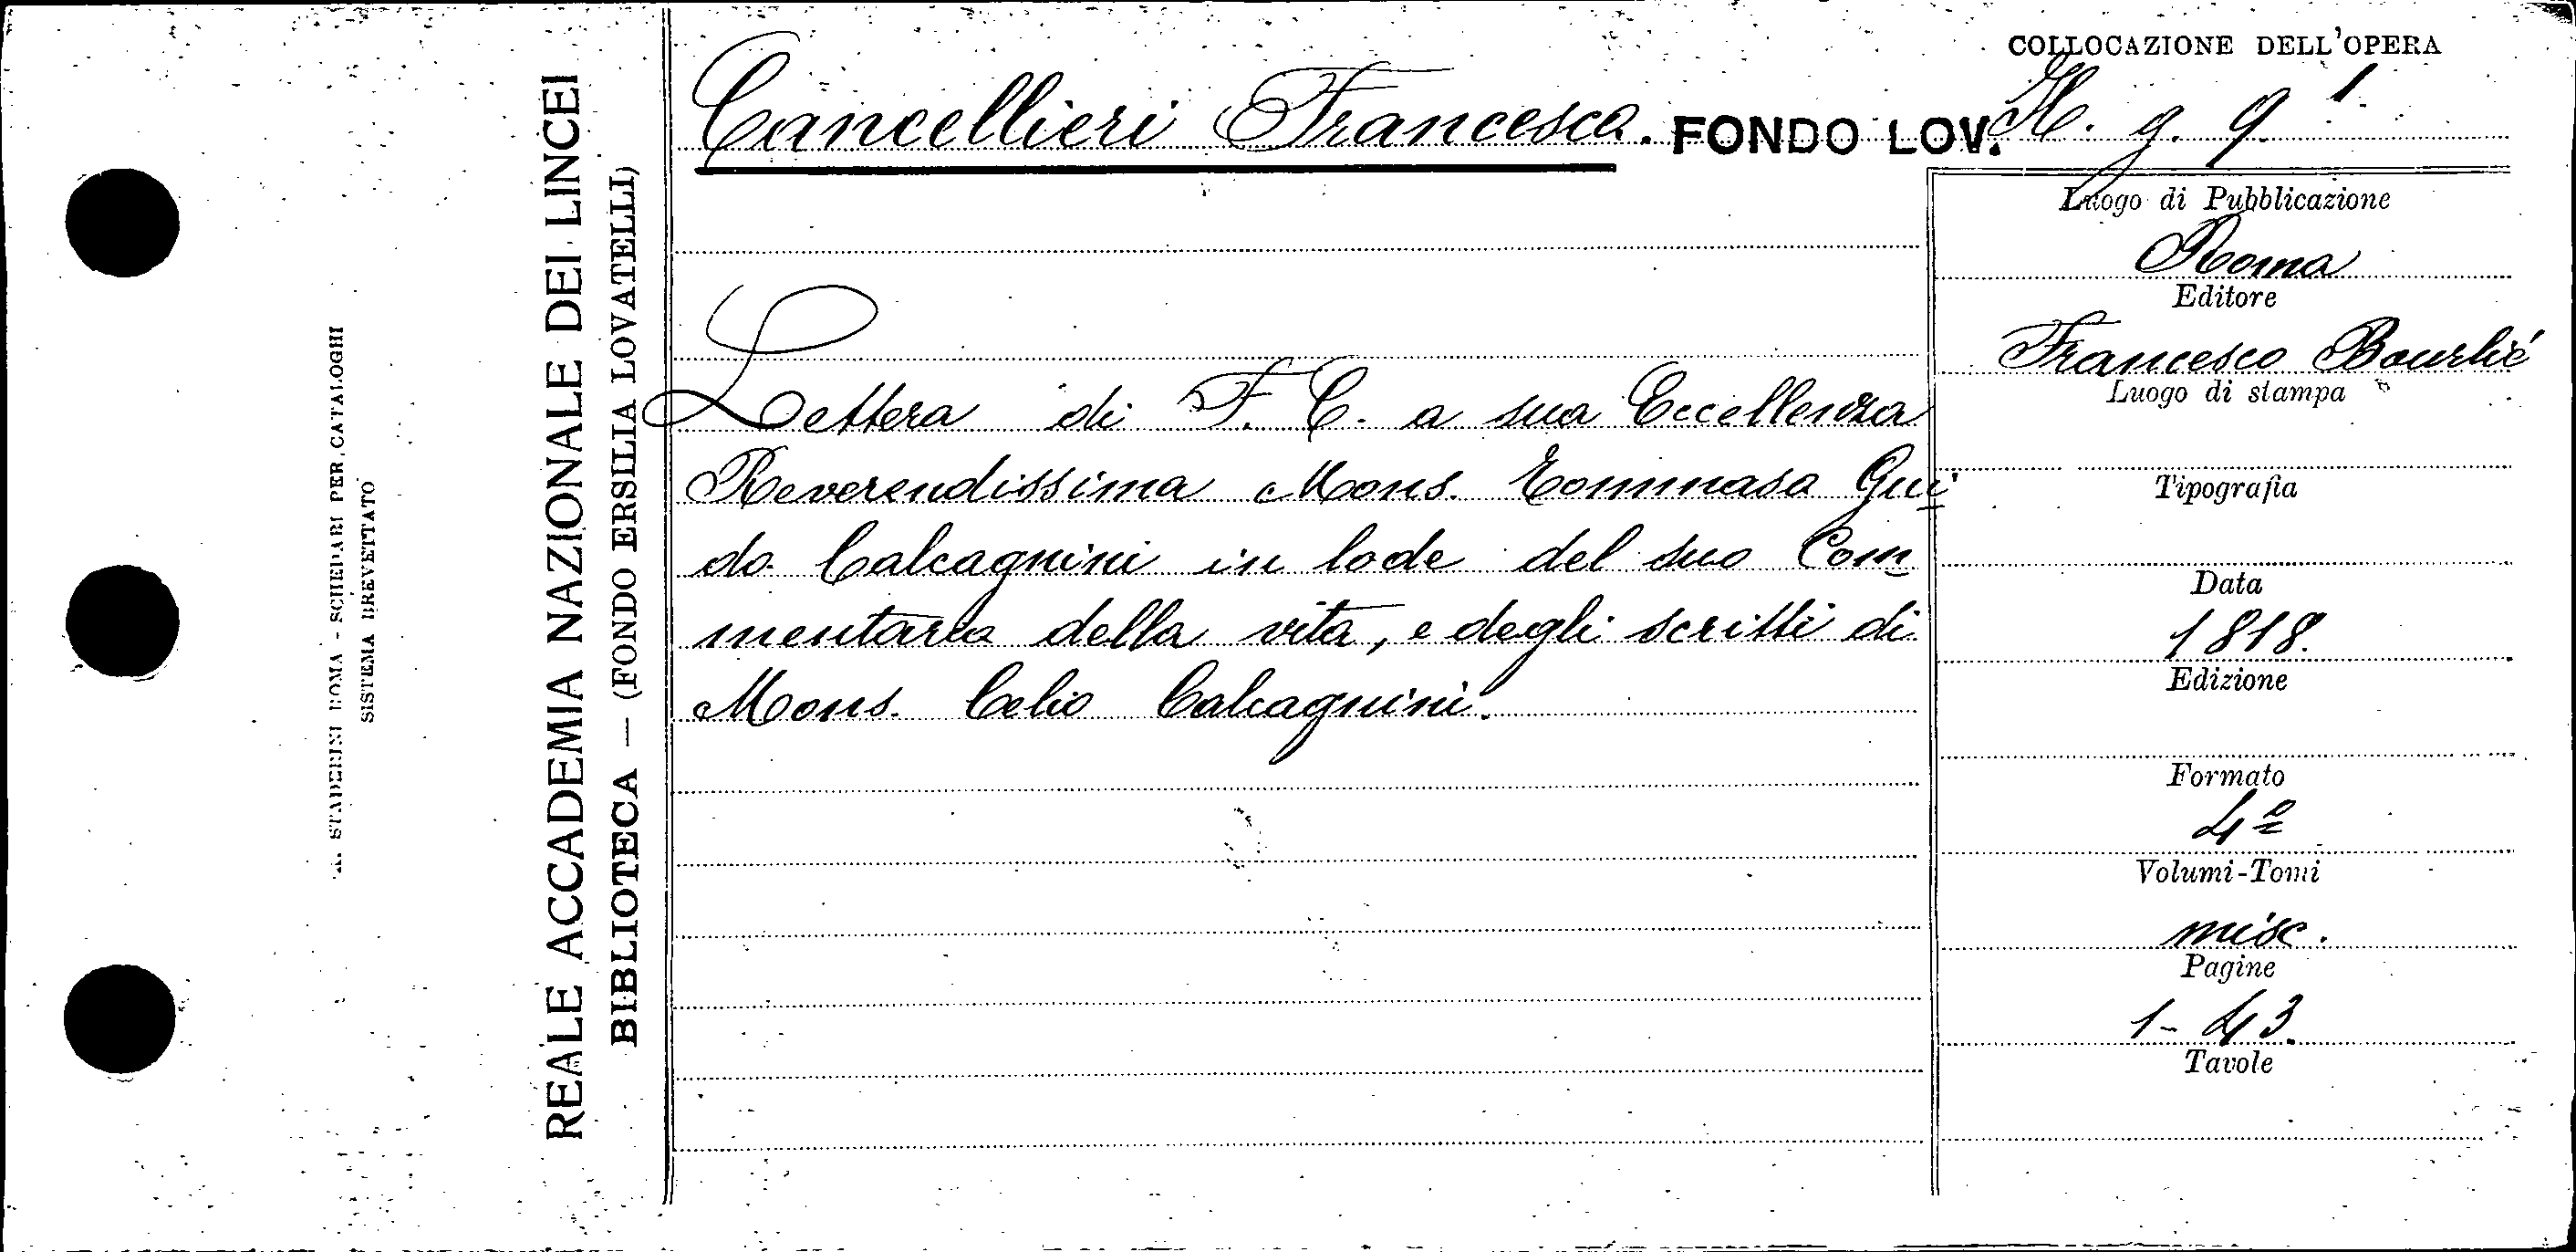 COLLOCAZIONE DELL'OPERA
Cancellieri Francesco. FONDO LOV. H. g. 9 1
Lettera di F. C. a sua Eccellenza
Reverendissima Mons. Tommaso Gui
do Calcagnini in lode del suo Com
mentario della vita, e degli scritti di
Mons. Celio Calcagnini.
Luogo di Pubblicazione
Roma
Editore
Francesco Bourlié
Luogo di stampa
Tipografia
Data
1818.
Edizione
Formato
4º
Volumi-Tomi
misc.
Pagine
1-43.
Tavole
REALE ACCADEMIA NAZIONALE DEI LINCEI
BIBLIOTECA — (FONDO ERSILIA LOVATELLI)
STADERINI ROMA - SCHEDARI PER CATALOGHI
SISTEMA BREVETTATO